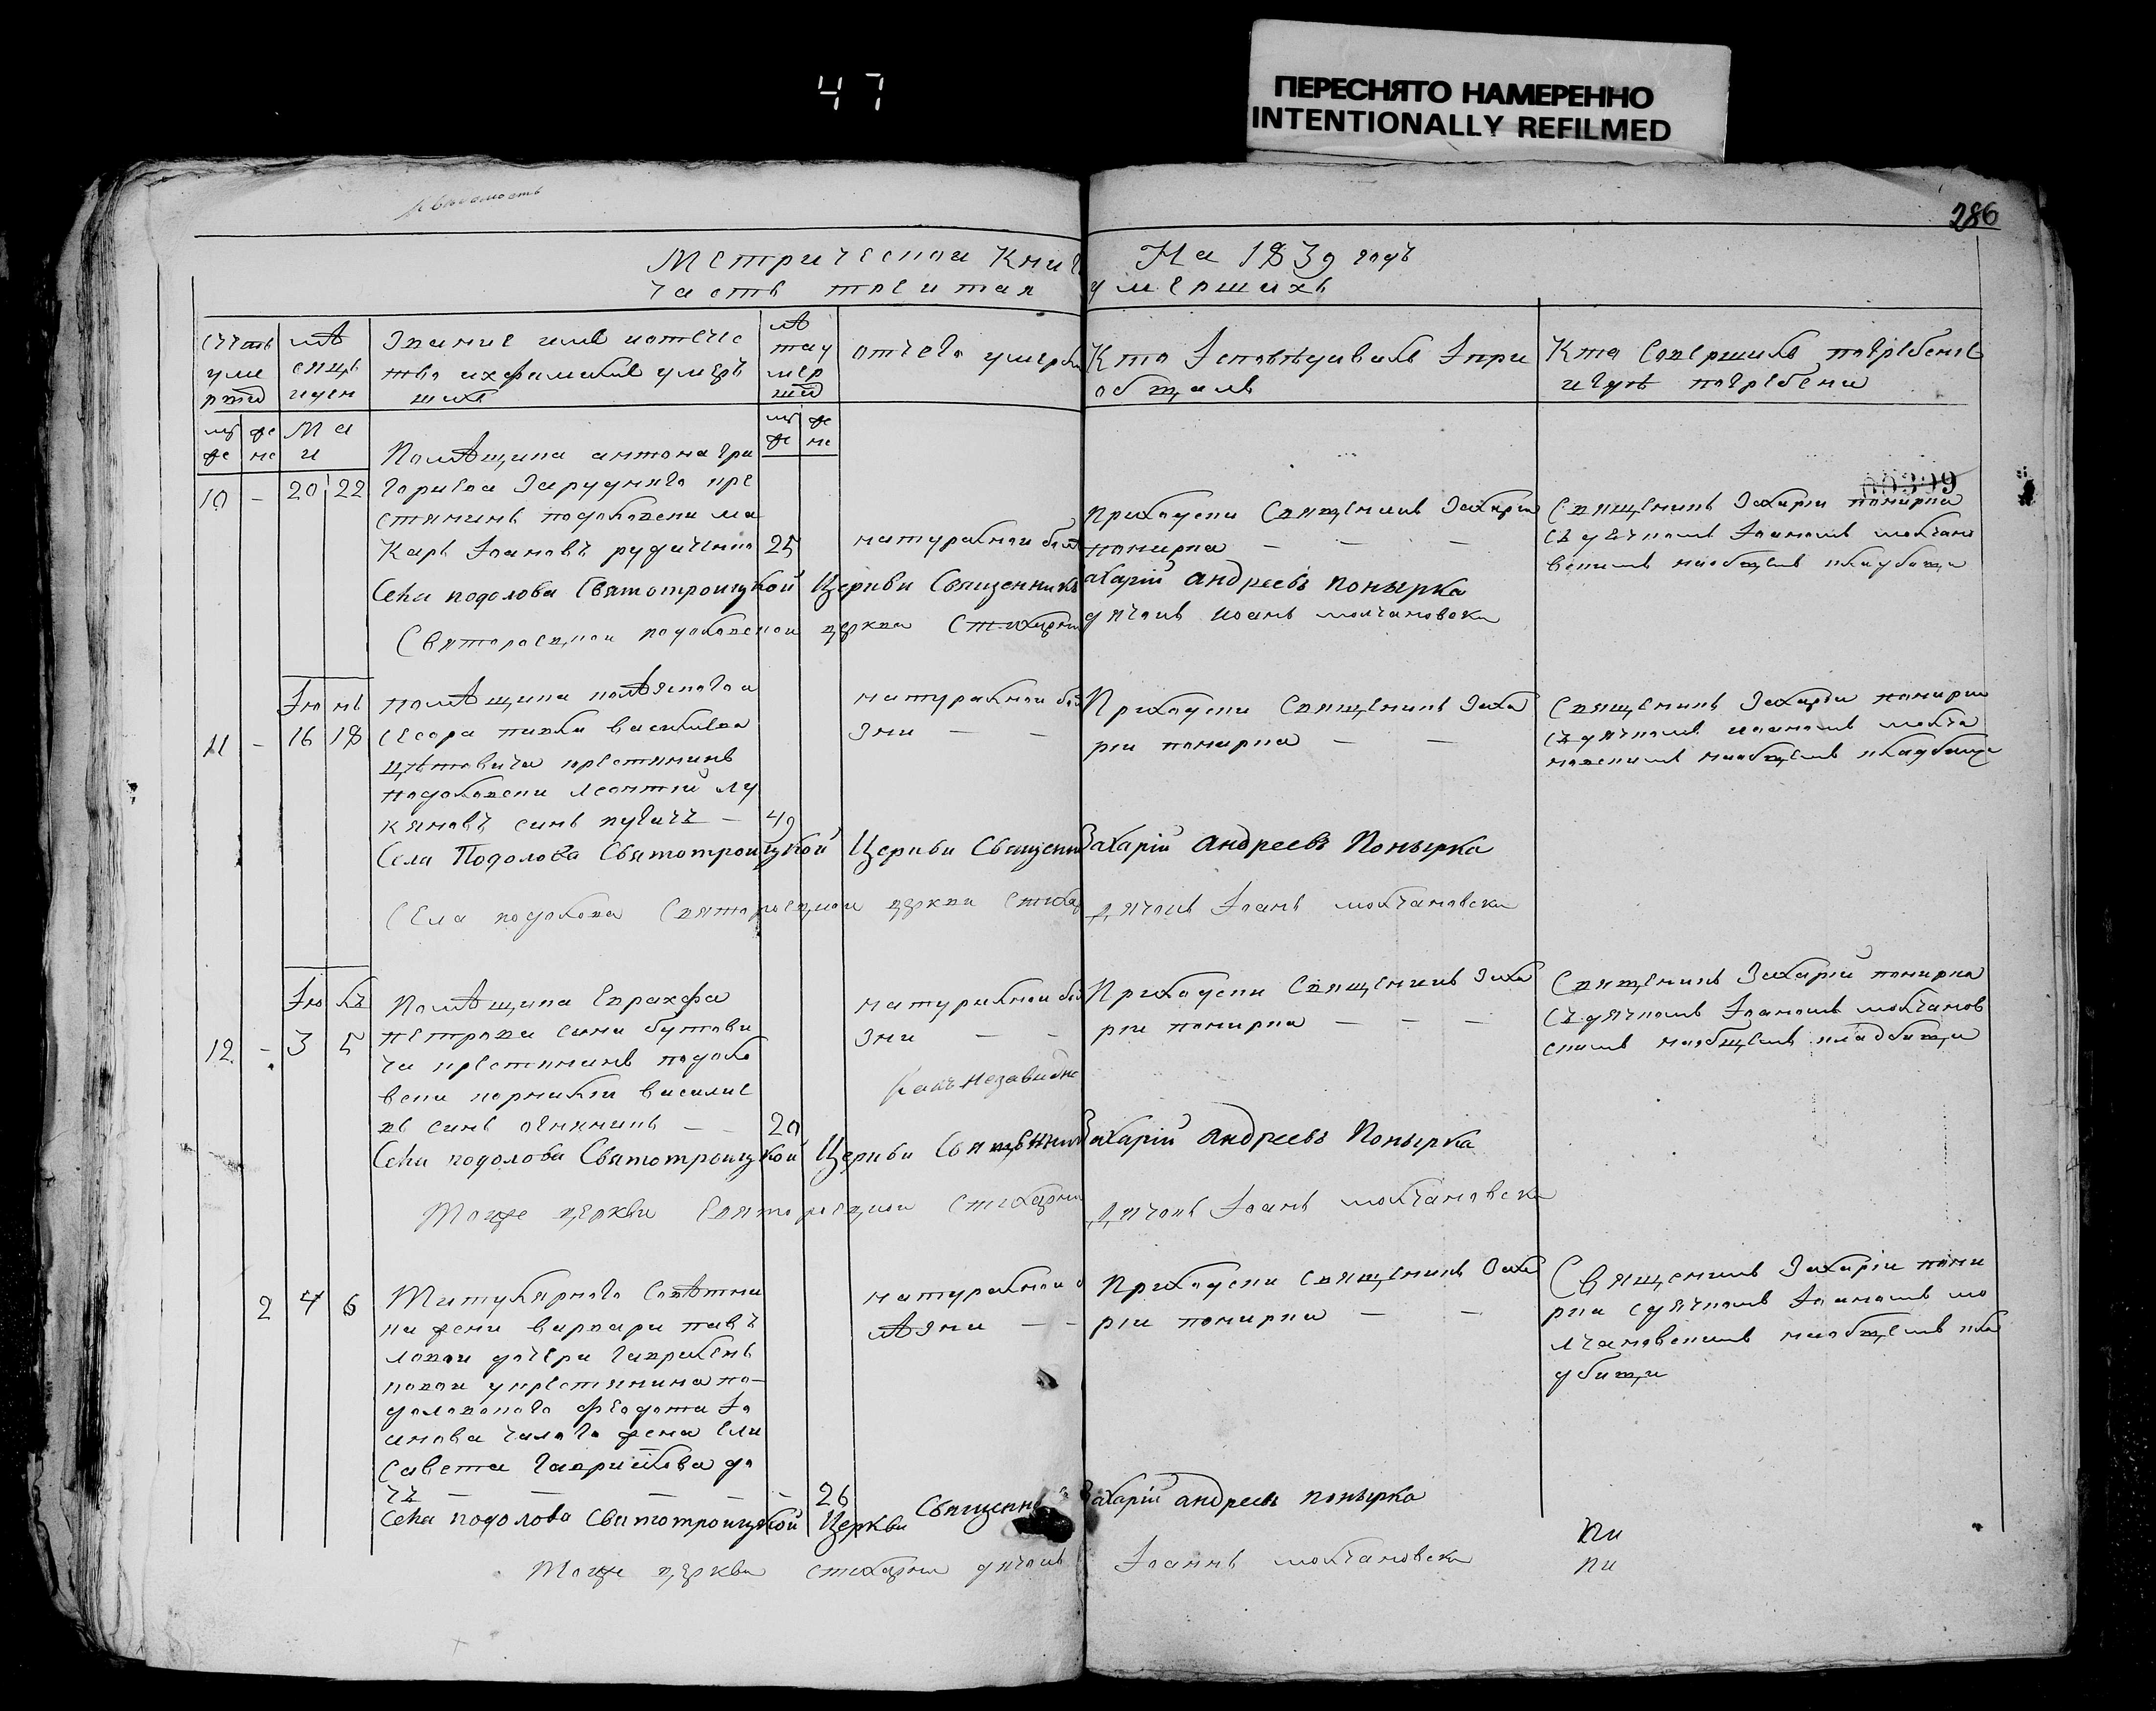 47
ПЕРЕСНЯТО НАМЕРЕННО
INTENTIONALLY REFILMED
286
Метрической Книги На 1839 годъ
часть третия умершихъ
Счетъ умертий
мѣсецъ и ден
Звание имя и отечес
тво и хфамилия умерь
шихъ
лѣта умершій
отчего умерли
Кто Ісповѣдивалъ Ипри
общалъ
Кто Совершилъ погребение
и гдѣ погребени
му же
же не
Маи
му же
же не
00399
10 - 20 22
Помѣщика антона гри
горієва Заруднего кре
стянинъ подоловски ма
каръ Іоановъ рудиченко 25
натуралнои бол
Приходски Священикъ Захарии
понирка — — —
Священикъ Захарии понирка
съ дячкомъ Іоаномъ молчано
вскимъ наобщемъ кладбищи
Села подолова Святотроицкой Церкви Священникъ Захарій Андреевъ Понырка
Святотроецкои подоловскои церкви Стихарни дячокъ иоанъ молчановски
Июнь
11 - 16 18
помѣщика
сесора павла василиева
цѣтовича крестянинъ
подоловски леонтий лу
кяновъ синъ пугачъ — 49
натуралнои бол
зни — —
Приходски Священикъ Заха
рии понирка — —
Священикъ Захарии понирки
съ дячкомъ иоаномъ молча
новскимъ наобщемъ кладбище
Села Подолова Святотроицкой Церкви Священи Захарій Андреевъ Понырка
Села подолова Святотроецкои церкви Стихар дячокъ Іоанъ молчановски
Июль
12 - 3 5
Помѣщика Еврахфа
петрова сина бутови
ча крестянинъ подоло
вски корнилии василие
въ синъ — — 20
натуралнои бол
зни — —
Приходски Священикъ Заха
рии понирка — — —
Священикъ Захарии понирка
съ дячкомъ Іоаномъ молчанов
скимъ наобщемъ кладбищи
Села подолова Святотроицкой Церкви Священник Захарій Андреевъ Понырка
Тоиже церкви Святотроецкои Стихарни дячокъ Іоанъ молчановски
2 4 6
Титулярного Совѣтни
ка жени варвари павъ
ловои дочери гаврилень
ковои у крестянина по-
доловского феодота Іо
анова чалого жена ели
савета гавриилова до
чъ — — — — 26
натуралнои б
лѣзни — —
Приходски Священикъ Заха
рии понирка — —
Священикъ Захарии пони
рка с дячкомъ Іоаномъ мо
лчановскимъ наобщемъ кла
дбищи
Села подолова Святотроицкой Церкви Священн Захарій Андреевъ Понырка
Тоиже церкви стихарни дячокъ Іоаннъ молчановски